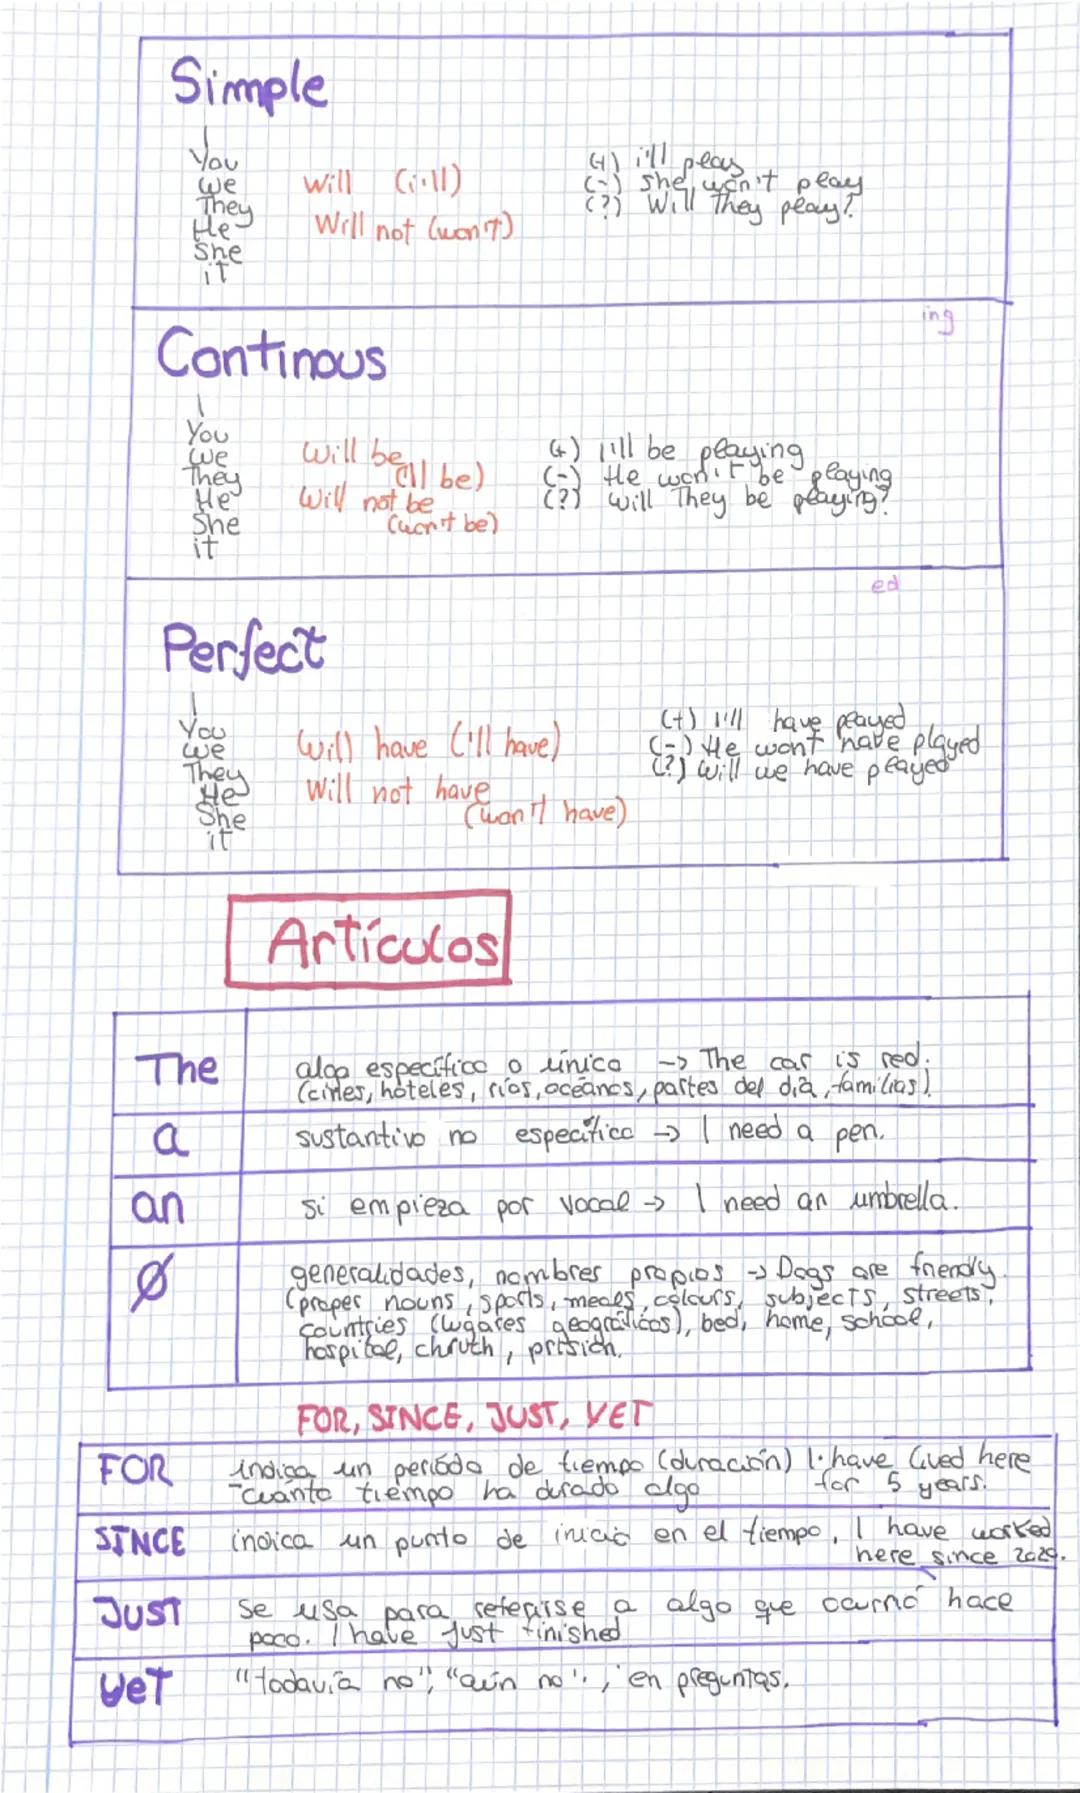 Simple
I
You
We
They
He
She
it
Will (i'll)
Will not (won't)
(+) i'll play
(-) she won't play
(?) Will They play?
ing
Continous
I
You
We
They
He
She
it
Will be
('ll be)
Will not be
(won't be)
(+) I'll be playing
(-) He won't be playing
(?) Will They be playing?
ed
Perfect
I
You
We
They
He
She
it
Will have ('ll have)
Will not have
(won't have)
(+) I'll have played
(-) He wont have played
(?) Will we have played
Artículos
The
algo específico o único -> The car is red.
(cines, hoteles, ríos, océanos, partes del día, familias).
a
sustantivo no específico -> I need a pen.
an
si empieza por vocal -> I need an umbrella.
Ø
generalidades, nombres propios -> Dogs are friendly.
(proper nouns, sports, meals, colours, subjects, streets,
countries (lugares geográficos), bed, home, school,
hospital, chruth, prision.
FOR, SINCE, JUST, YET
FOR
indica un período de tiempo (duración) I have lived here
-cuánto tiempo ha durado algo for 5 years.
SINCE
indica un punto de inicio en el tiempo, I have worked
here since
JUST
Se usa para referirse a algo que ocurrió hace
poco. I have just finished
YET
"todavía no", "aún no", en preguntas.